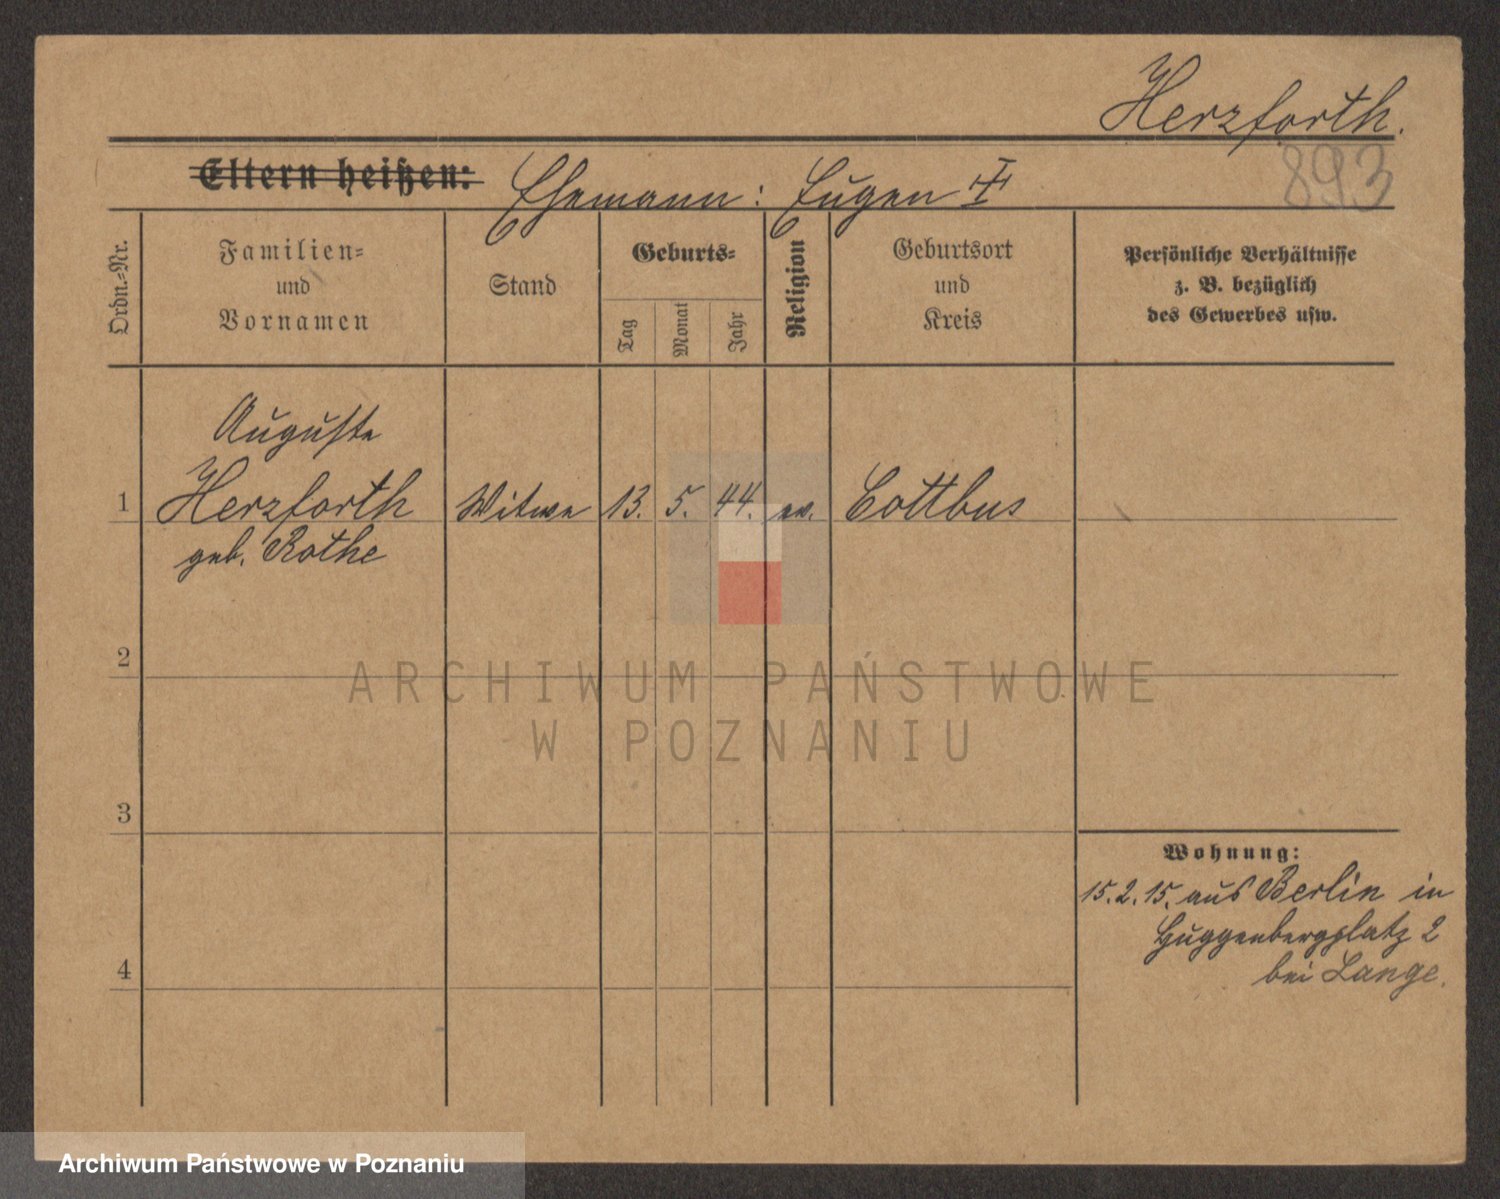 Herzforth.
893
Eltern heißen: Ehemann: Eugen ‡
Ordn.-Nr.
Familien-
und
Vornamen
Stand
Geburts-
Tag
Monat
Jahr
Religion
Geburtsort
und
Kreis
Persönliche Verhältnisse
z. B. bezüglich
des Gewerbes usw.
Auguste
1 Herzforth Witwe 13. 5. 44. ev. Cottbus
geb. Rothe
2
ARCHIWUM PAŃSTWOWE
W POZNANIU
3
Wohnung:
15.2.15. aus Berlin in
Guggenbergplatz 2
4
bei Lange.
Archiwum Państwowe w Poznaniu